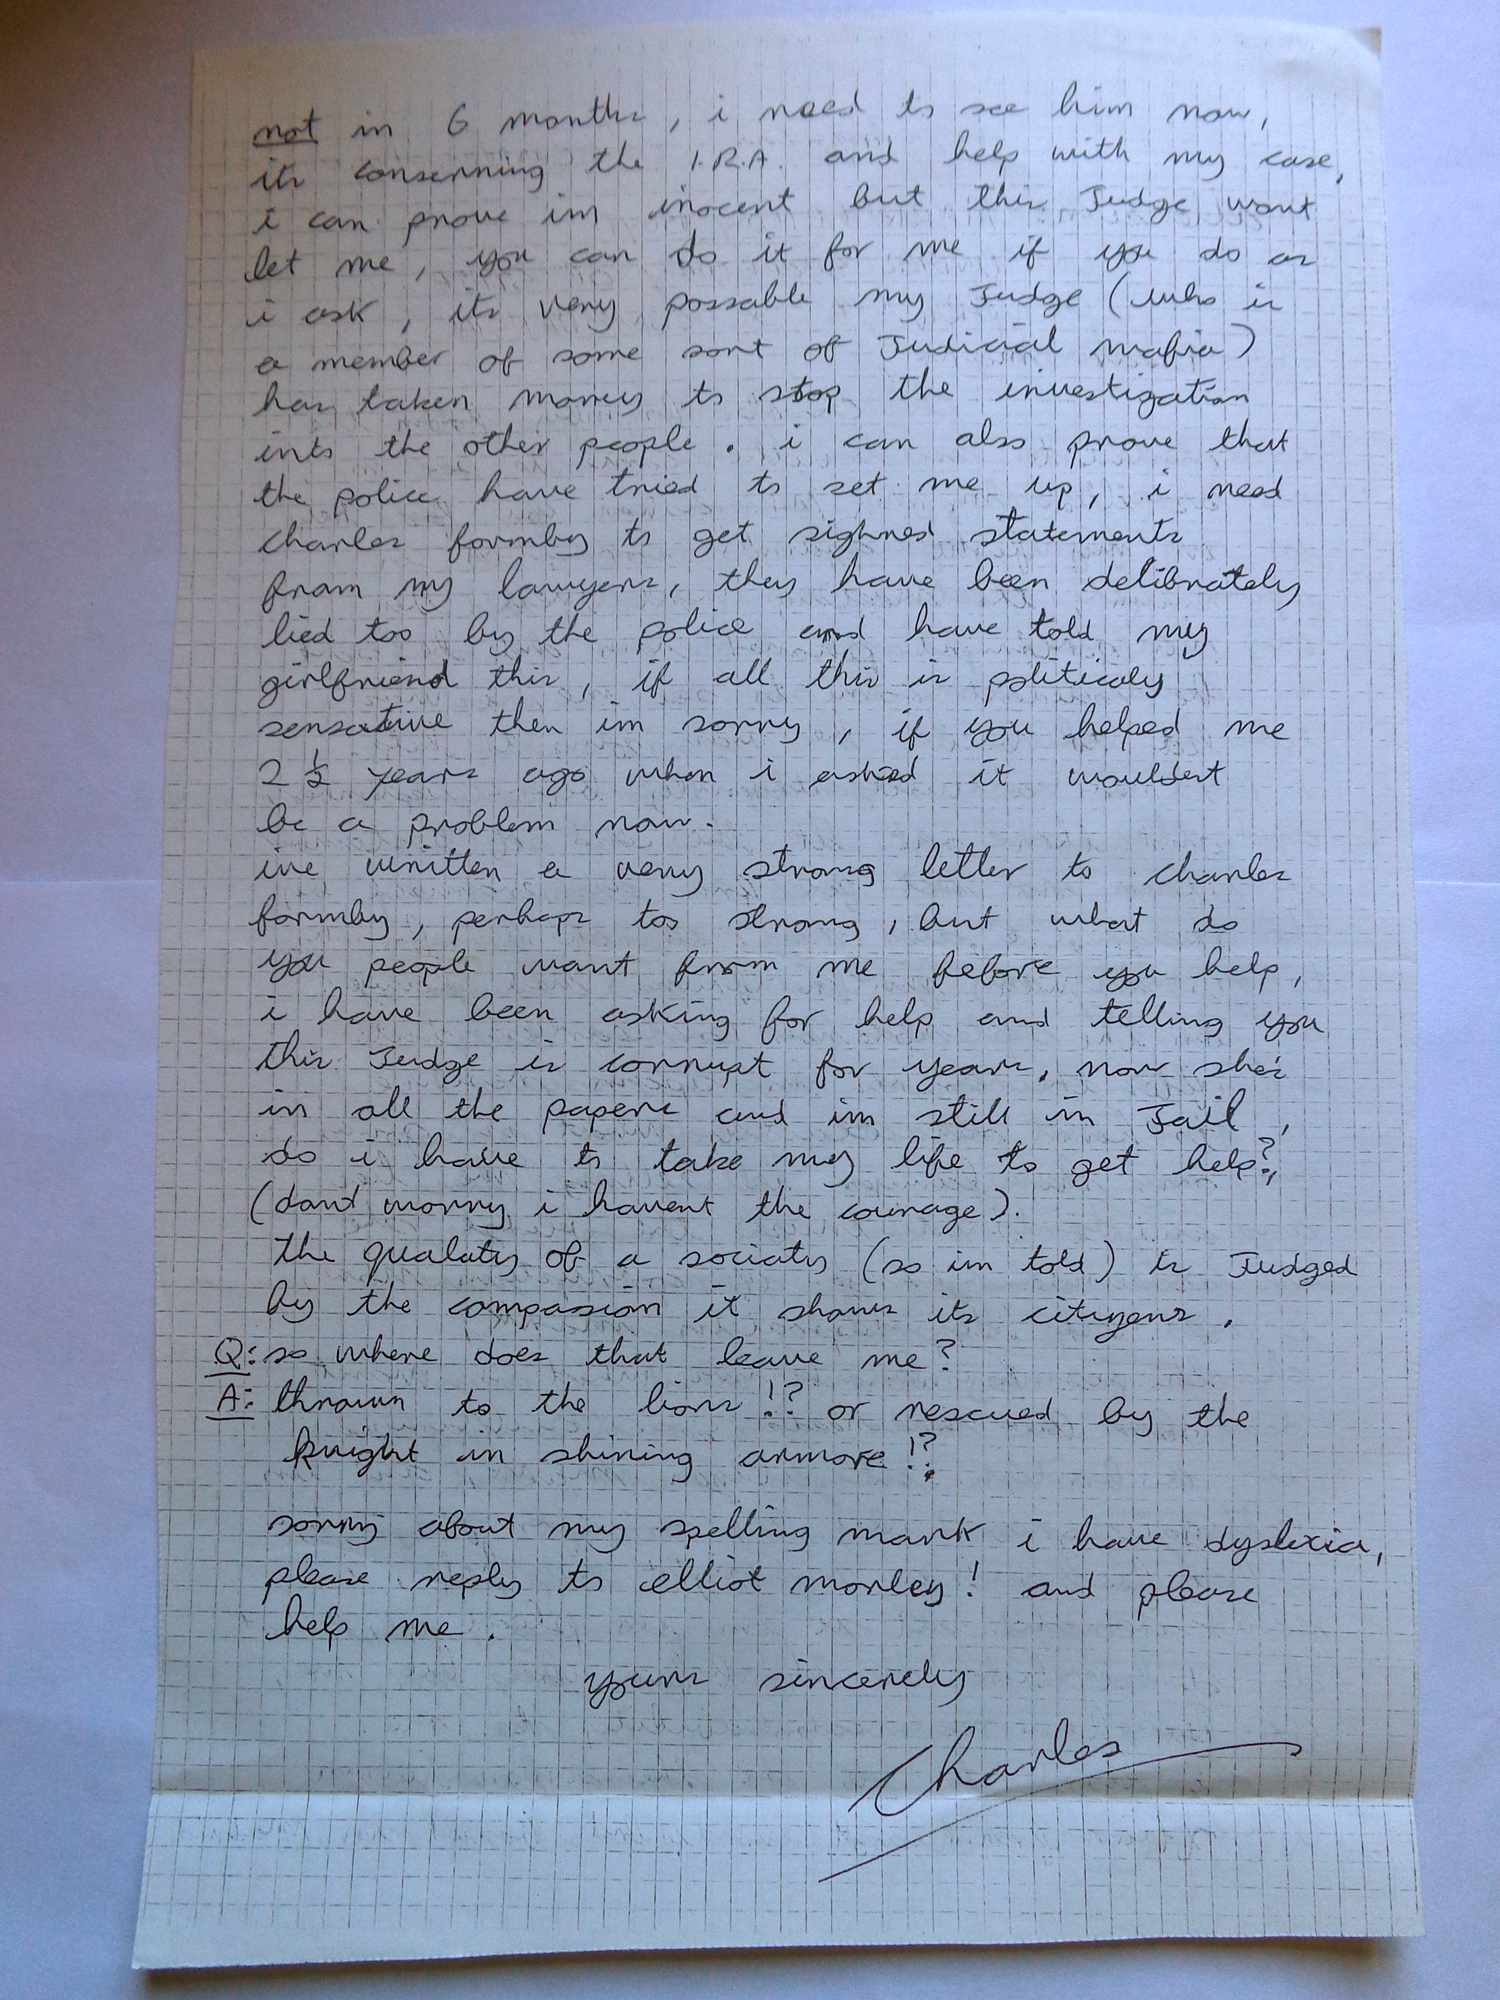 not in 6 months, i need to see him now,
its conserning the I.R.A. and help with my case,
i can prove im inocent but this Judge wont
let me, you can do it for me if you do as
i ask, its very possable my Judge (who is
a member of some sort of Judicial mafia)
has taken money to stop the investigation
into the other people. i can also prove that
the police have tried to set me up, i need
charles formby to get sighned statements
from my lawyers, they have been delibrately
lied too by the police and have told my
girlfriend this, if all this is politicaly
sensative then im sorry, if you helped me
2 ½ years ago when i asked it wouldent
be a problem now.
ive written a very strong letter to charles
formby, perhaps too strong, but what do
you people want from me before you help,
i have been asking for help and telling you
this Judge is corrupt for years, now she's
in all the papers and im still in Jail,
do i have to take my life to get help?,
(dont worry i havent the courage).
the qualaty of a sociaty (so im told) is Judged
by the compassion it shows its cityzens.
Q: so where does that leave me?
A: thrown to the lions!? or rescued by the
knight in shining armore!?.
sorry about my spelling mark i have dyslexia,
please reply to elliot morley! and please
help me.
yours sincerely
Charles